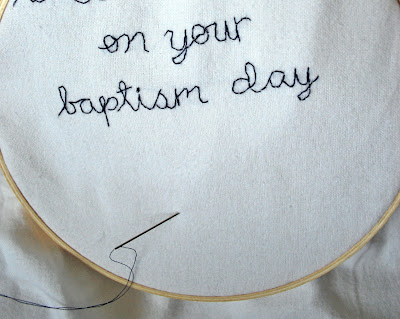 on your
baptism day